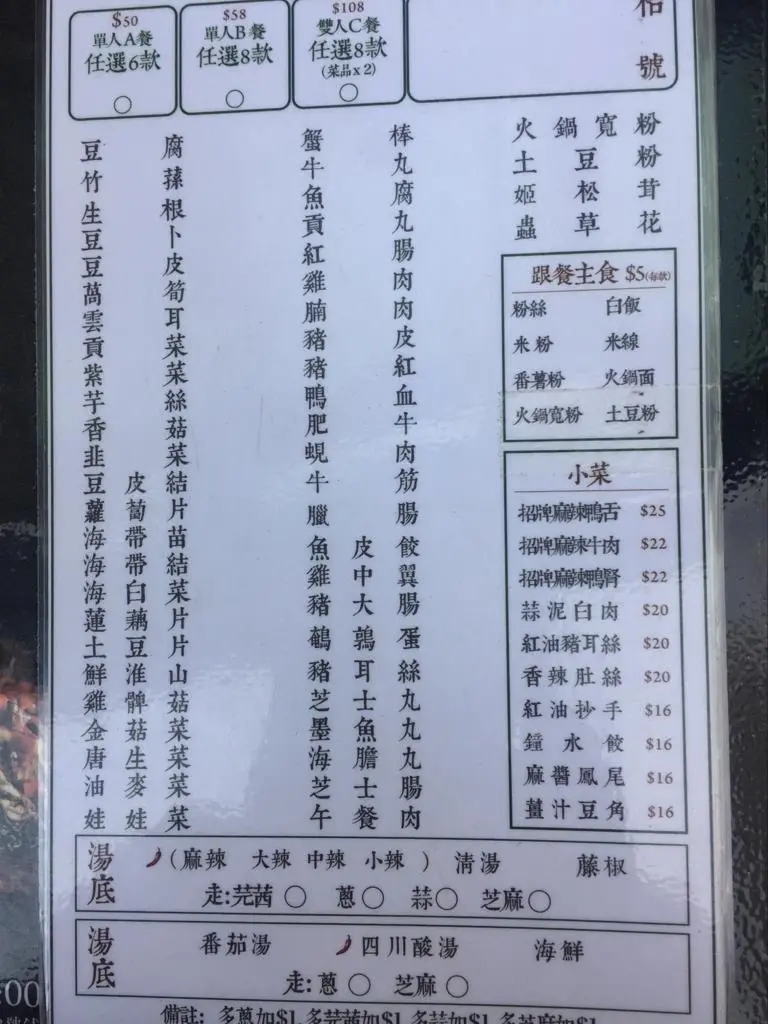 $50
單人A餐
任選6款
$58
單人B餐
任選8款
$108
雙人C餐
任選8款
(菜品x2)
號
豆腐
竹蓀
生根
豆卜
豆皮
萵筍
雲耳
貢菜
紫菜
芋絲
香菇
韭菜
豆皮結
蘿蔔片
海帶苗
海帶結
海白菜
蓮藕片
土豆片
鮮淮山
雞髀菇
金菇菜
唐生菜
油麥菜
娃娃菜
蟹棒
牛丸
魚腐
貢丸
紅腸
雞肉
腩肉
豬皮
豬紅
鴨血
肥牛
蜆肉
牛筋
臘腸
魚皮餃
雞中翼
豬大腸
鵪鶉蛋
豬耳絲
芝士丸
墨魚丸
海膽丸
芝士腸
午餐肉
火鍋寬粉
土豆粉
姬松茸
蟲草花
跟餐主食 $5(每款)
粉絲 白飯
米粉 米線
番薯粉 火鍋面
火鍋寬粉 土豆粉
小菜
招牌麻辣鴨舌 $25
招牌麻辣牛肉 $22
招牌麻辣鴨腎 $22
蒜泥白肉 $20
紅油豬耳絲 $20
香辣肚絲 $20
紅油抄手 $16
鐘水餃 $16
麻醬鳳尾 $16
薑汁豆角 $16
湯底
(麻辣 大辣 中辣 小辣) 清湯 藤椒
走:芫茜 蔥 蒜 芝麻
湯底
番茄湯 四川酸湯 海鮮
走:蔥 芝麻
備註: 多蔥加$1, 多芫茜加$1, 多蒜加$1, 多芝麻加$1